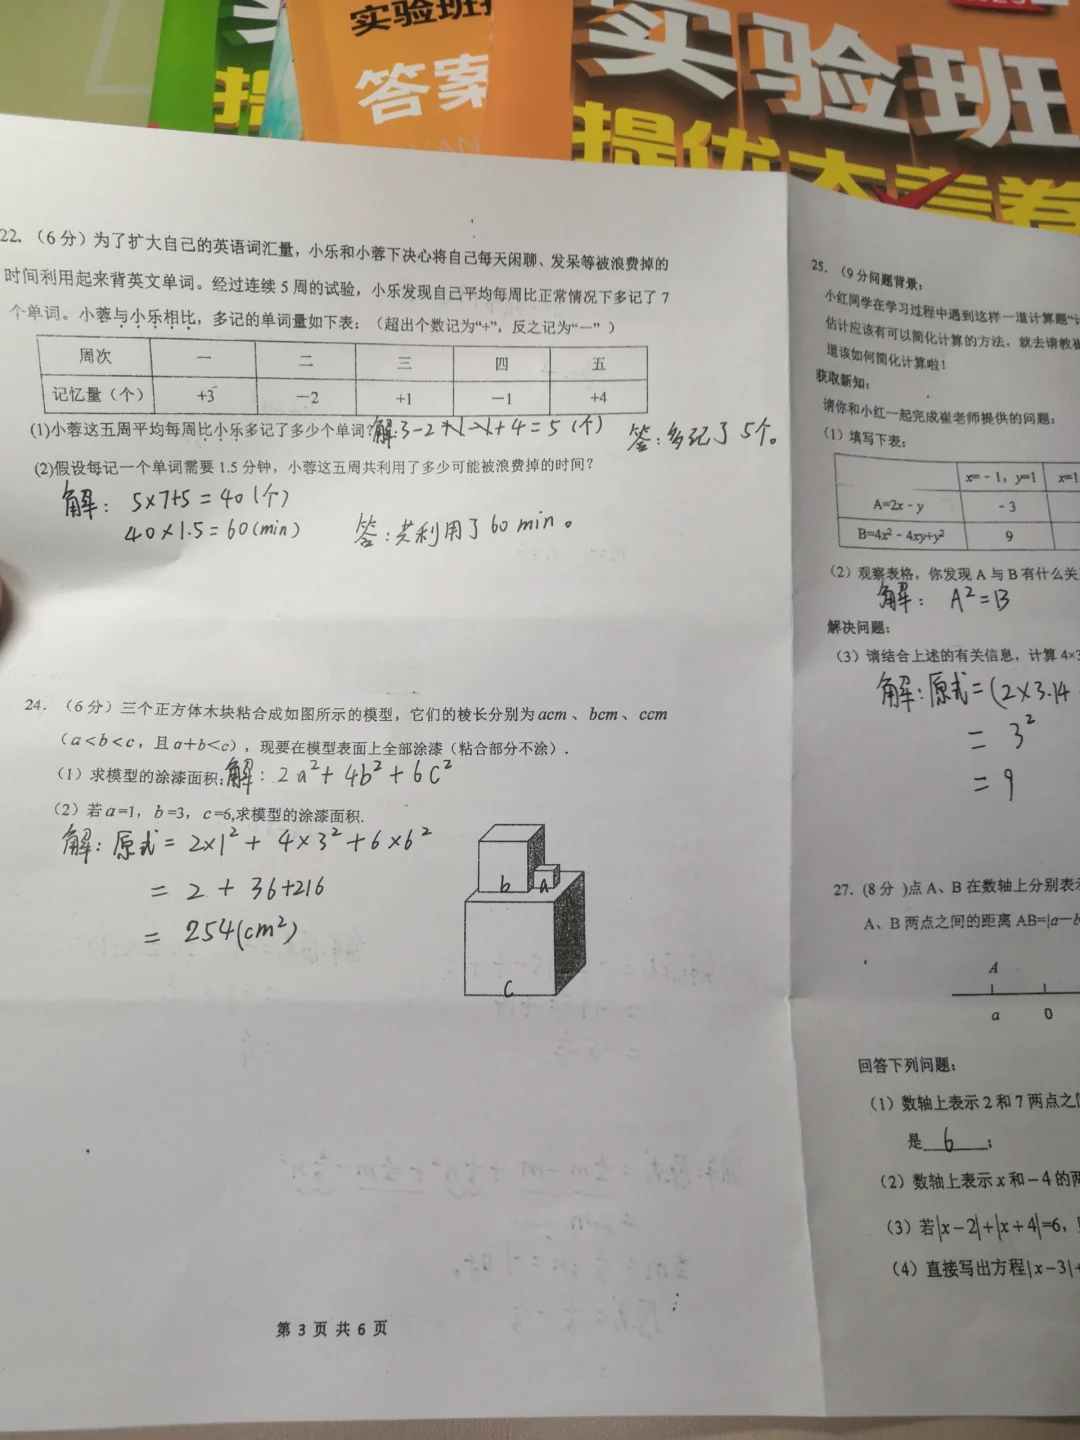 实验班
答案
实验班
提优大考卷
22. （6分）为了扩大自己的英语词汇量，小乐和小蓉下决心将自己每天闲聊、发呆等被浪费掉的
时间利用起来背英文单词。经过连续5周的试验，小乐发现自己平均每周比正常情况下多记了7
个单词。小蓉与小乐相比，多记的单词量如下表：（超出个数记为“+”，反之记为“－”）
周次 一 二 三 四 五
记忆量（个） +3 －2 +1 －1 +4
(1)小蓉这五周平均每周比小乐多记了多少个单词？解:3-2+1-1+4=5（个） 答：多记了5个。
(2)假设每记一个单词需要1.5分钟，小蓉这五周共利用了多少可能被浪费掉的时间？
解： 5×7+5=40（个）
40×1.5=60(min) 答：共利用了60min。
24. （6分）三个正方体木块粘合成如图所示的模型，它们的棱长分别为acm、bcm、ccm
（a<b<c，且a+b<c），现要在模型表面上全部涂漆（粘合部分不涂）.
（1）求模型的涂漆面积；解：2a²+4b²+6c²
（2）若a=1，b=3，c=6,求模型的涂漆面积.
解：原式=2×1²+4×3²+6×6²
=2+36+216
=254(cm²)
b a
c
第3页共6页
25. （9分问题背景：
小红同学在学习过程中遇到这样一道计算题“计
估计应该有可以简化计算的方法，就去请教崔
道该如何简化计算啦！
获取新知：
请你和小红一起完成崔老师提供的问题：
（1）填写下表：
x=-1，y=1 x=1
A=2x-y -3
B=4x²-4xy+y² 9
（2）观察表格，你发现A与B有什么关
解： A²=B
解决问题：
（3）请结合上述的有关信息，计算4×3
解：原式=(2×3.14
=3²
=9
27. (8分 )点A、B在数轴上分别表示
A、B两点之间的距离AB=|a-b
A
a 0
回答下列问题：
（1）数轴上表示2和7两点之间
是 6 ；
（2）数轴上表示x和－4的两
（3）若|x-2|+|x+4|=6，
（4）直接写出方程|x-3|+